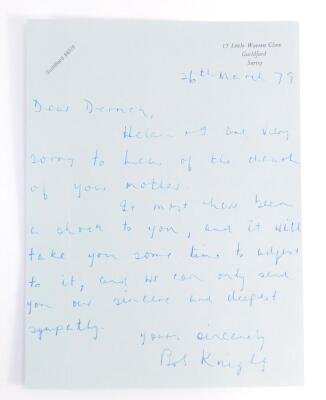 17 Little Warren Close
Guildford
Surrey
Guildford
26th March 79
Dear Derrick,
Helen & I are very
sorry to hear of the death
of your mother.
It must have been
a shock to you, and it will
take you some time to adjust
to it, and we can only send
you our sincere and deepest
sympathy.
Yours sincerely
Bob Knight